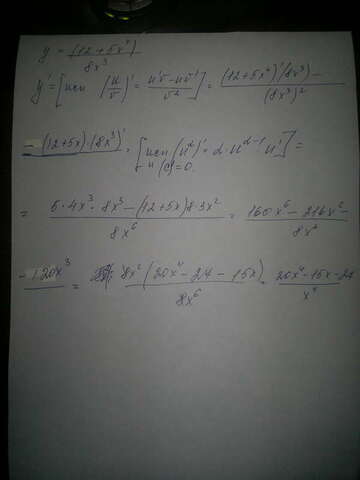 y = (12 + 5x⁴) / 8x³
y' = [исп (u/v)' = (u'v - uv') / v²] = ((12 + 5x⁴)'(8x³) -) / (8x³)²
- (12 + 5x)·(8x³)' = [исп (u^α)' = α·u^(α-1)·u' и (c)' = 0.] =
= (5·4x³·8x³ - (12 + 5x)8·3x²) / 8x⁶ = (160x⁶ - 216x² -) / 8x⁶
- 120x³ = 8x²(20x⁴ - 24 - 15x) / 8x⁶ = (20x⁴ - 15x - 24) / x⁴